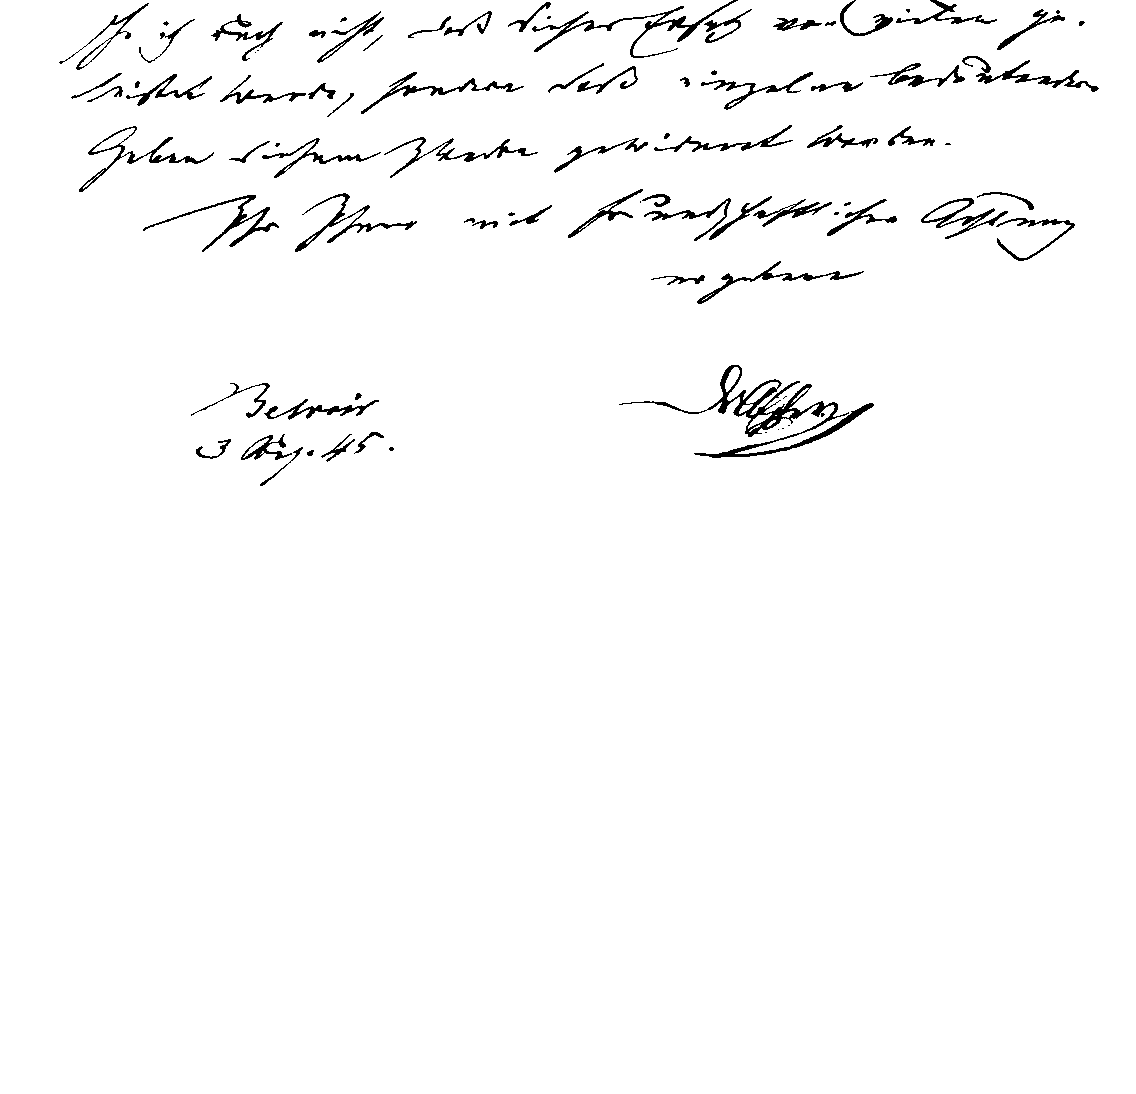 he ich auch nicht, daß dieser Ersatz von vielen ge-
leistet werde, sondern daß einzelne bedeutende
Gaben diesem Zwecke gewidmet werden.
Ihr Ihnen mit freundschaftlicher Achtung
ergebene
3 Aug. 45.